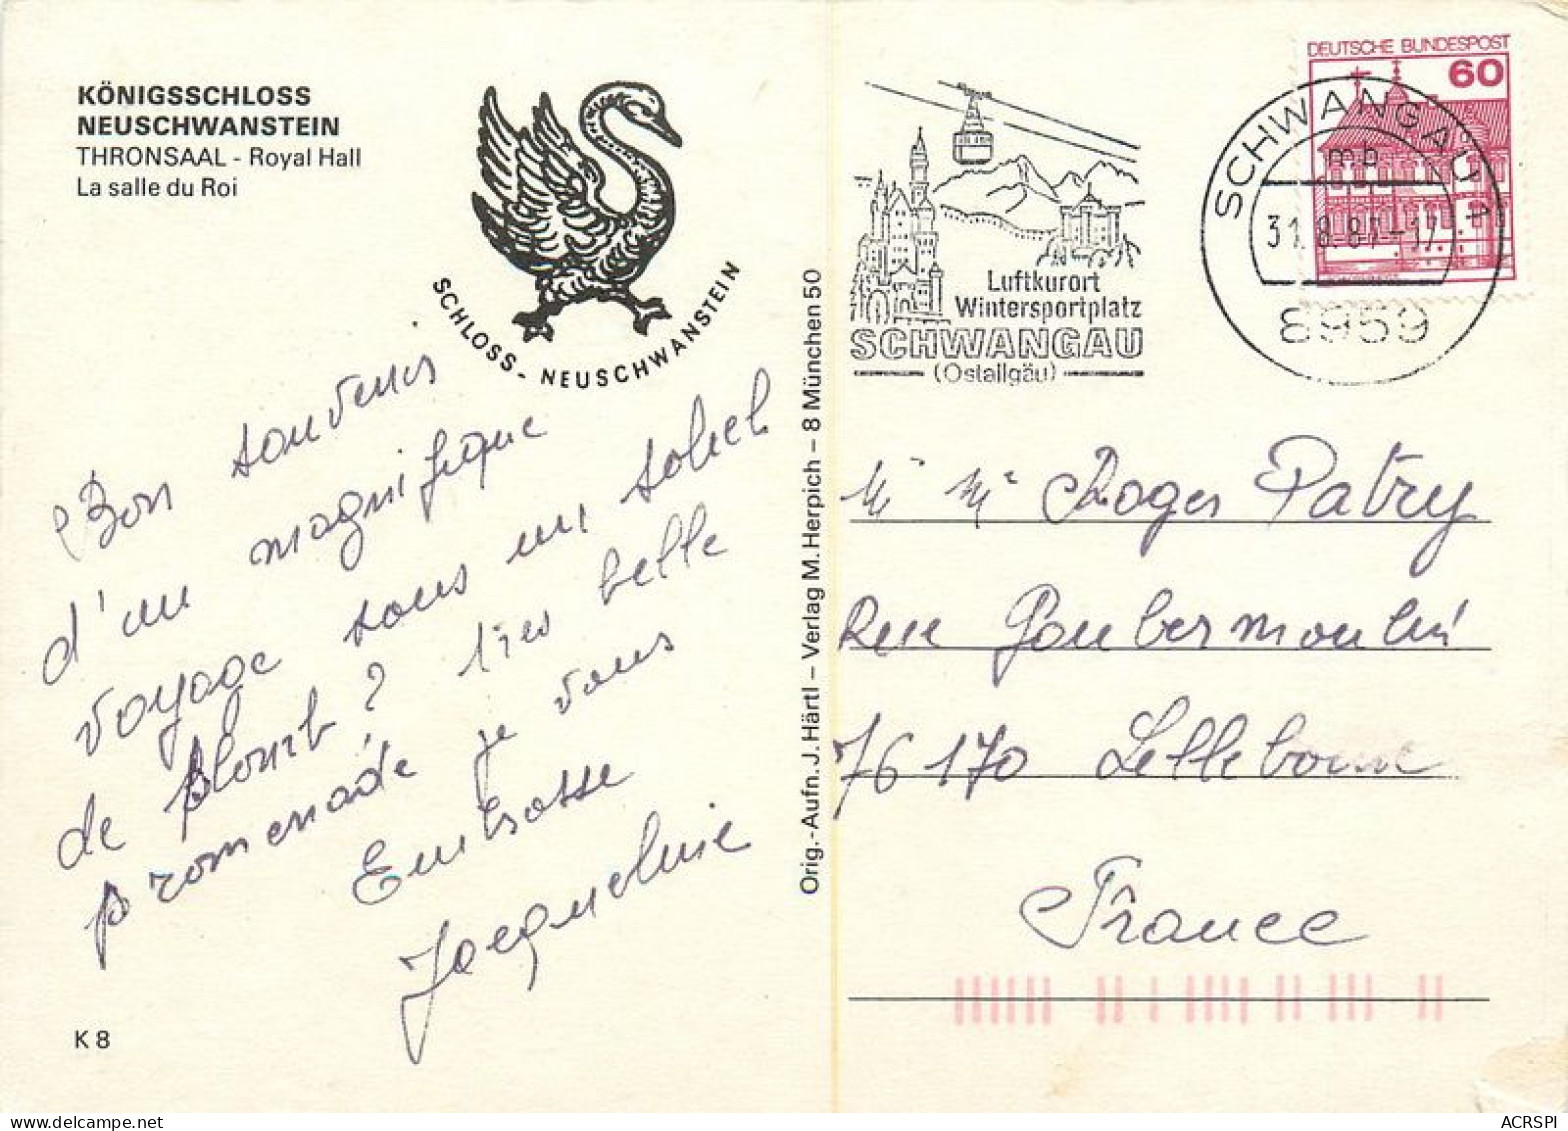 KÖNIGSSCHLOSS
NEUSCHWANSTEIN
THRONSAAL - Royal Hall
La salle du Roi
SCHLOSS - NEUSCHWANSTEIN
Bon souvenis
d'un magnifique
voyage sous un soleil
de très belle
promenade je vous
Embrasse
Jacqueline
K 8
Orig.-Aufn. J. Härtl – Verlag M. Herpich – 8 München 50
Luftkurort
Wintersportplatz
SCHWANGAU
(Ostallgäu)
DEUTSCHE BUNDESPOST
60
SCHWANGAU 1
mb
31.8.87-17
8959
Mr Me Roger Patry
Rue Goubermoulin
76170 Lillebonne
France
ACRSPI